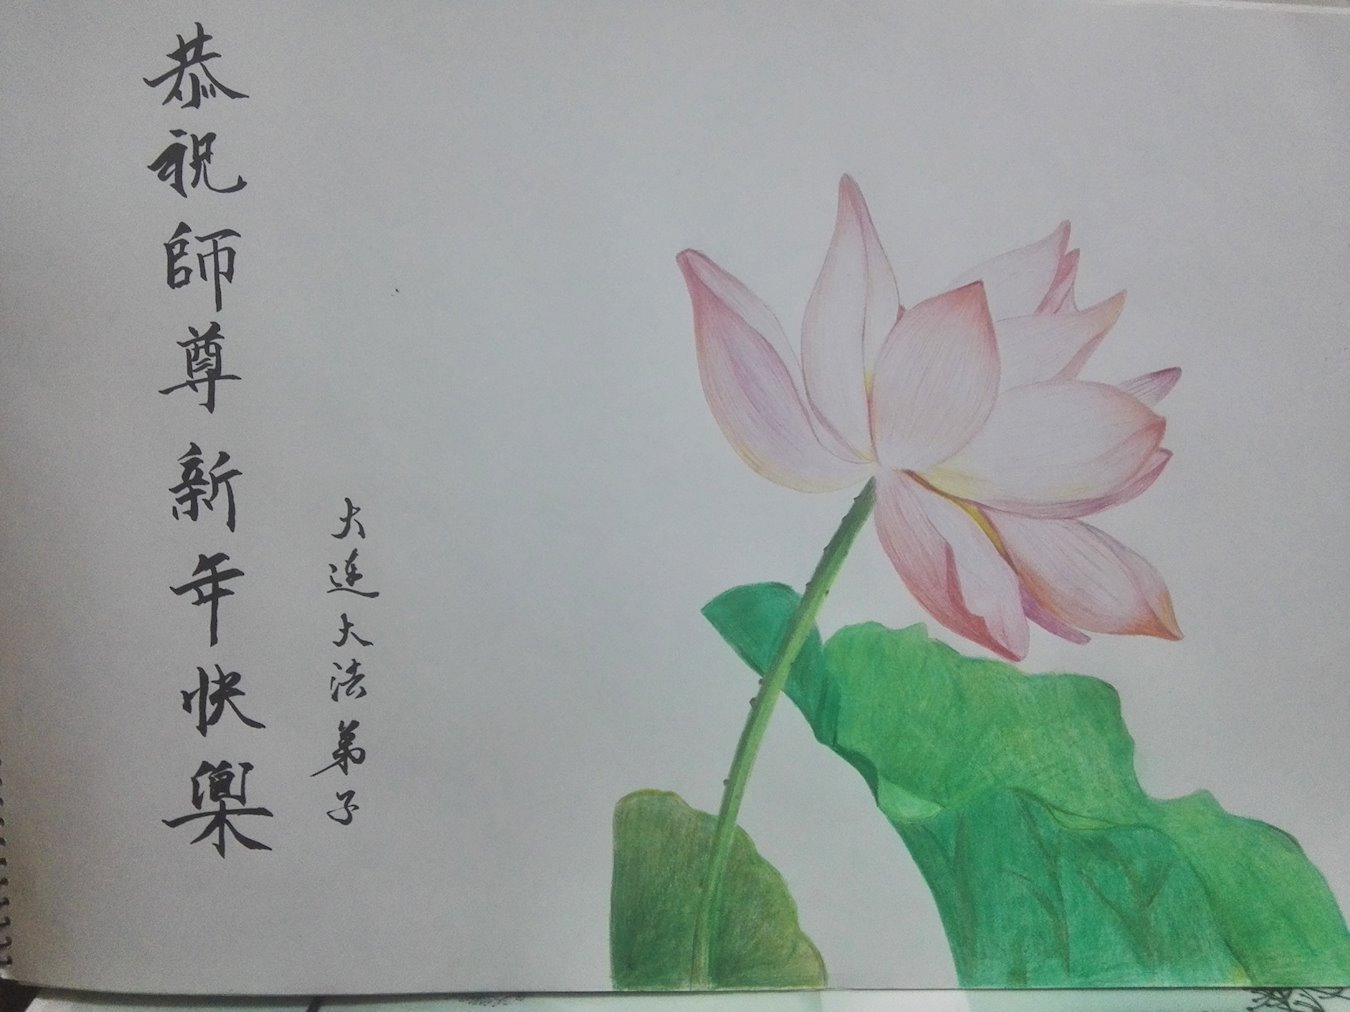 恭祝師尊新年快樂
大連大法弟子